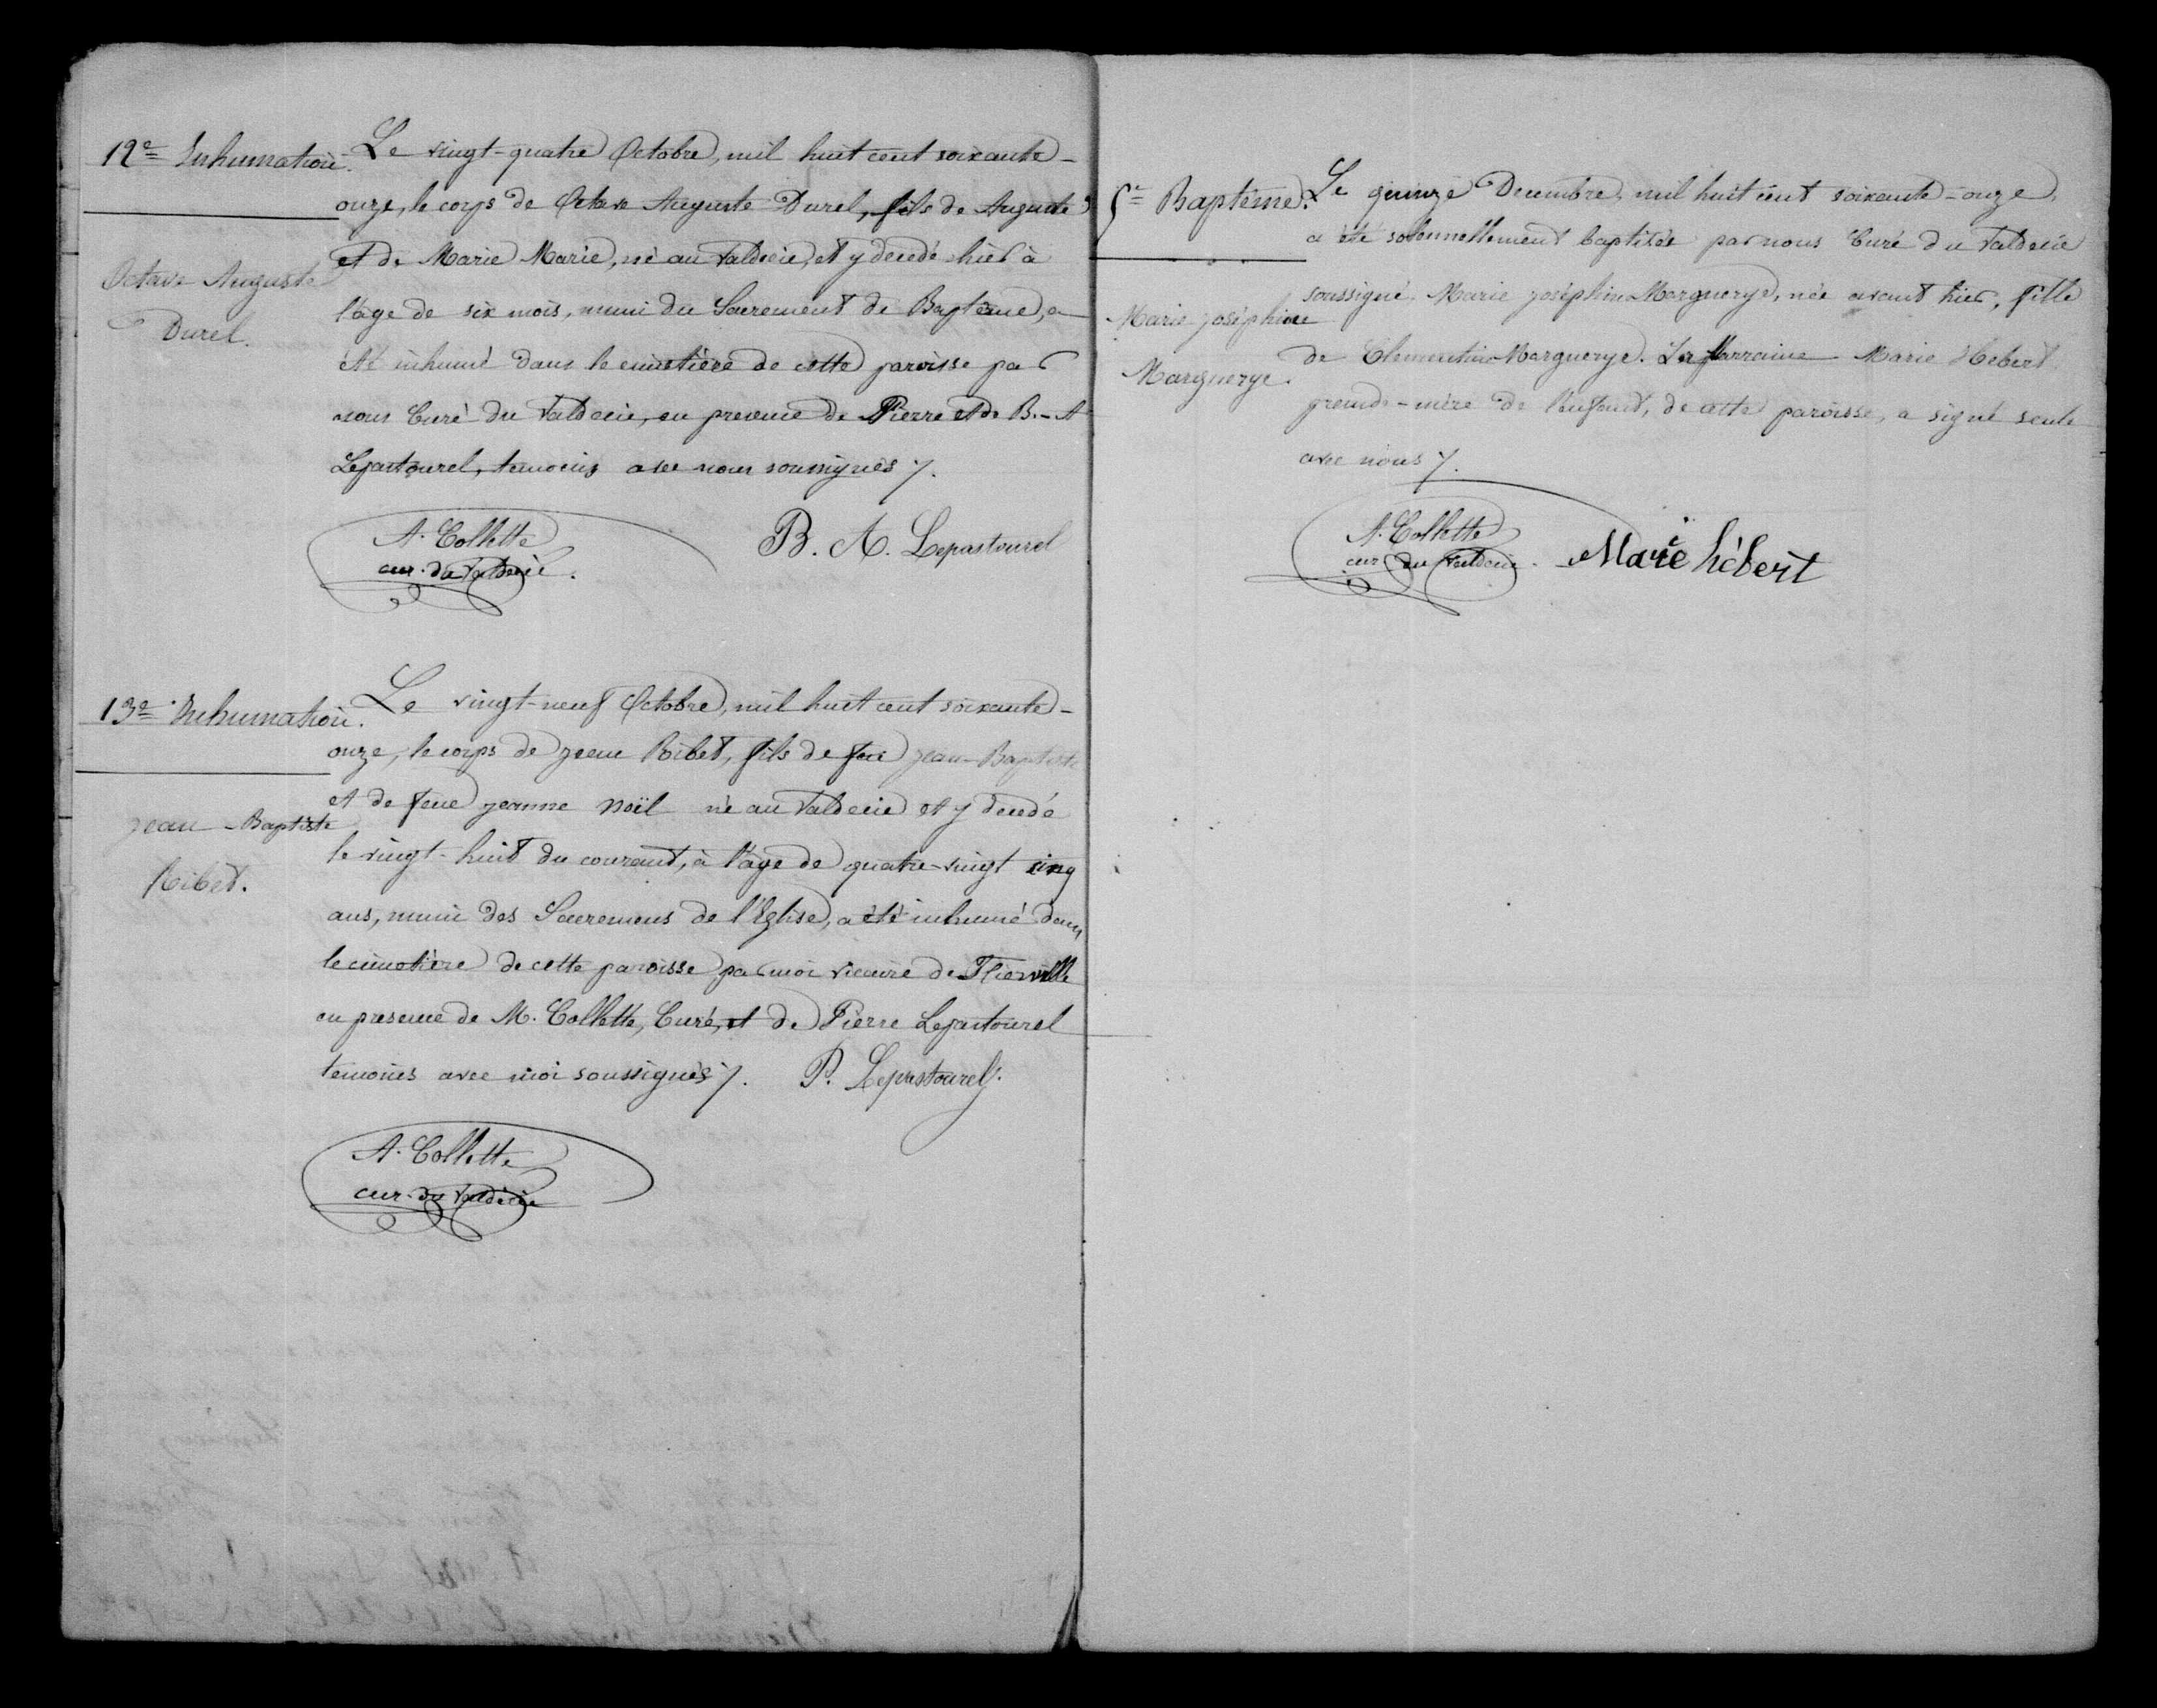 12e Inhumation.
Octave Auguste
Durel.
Le vingt-quatre Octobre, mil huit cent soixante-
onze, le corps de Octave Auguste Durel, fils de Auguste
et de Marie Marie, né au Valdecie, et y decedé hier à
l'age de six mois, muni du Sacrement de Baptême, a
été inhumé dans le cimetière de cette paroisse par
nous Curé du Valdecie, en presence de Pierre et de B.-A
Lepastourel, temoins avec nous soussignés ./.
A. Collette
cur. du Valdecie.
B. A. Lepastourel
13e Inhumation.
Jean-Baptiste
Ribet.
Le vingt-neuf Octobre, mil huit cent soixante-
onze, le corps de jean Ribet, fils de feu jean-Baptiste
et de feue jeanne Noël né au Valdecie et y decedé
le vingt-huit du courant, à l'age de quatre-vingt cinq
ans, muni des Sacremens de l'Eglise, a été inhumé dans
le cimetière de cette paroisse par moi vicaire de Pierville
en presence de M. Collette, Curé, et de Pierre Lepastourel
temoins avec moi soussignés ./. P. Lepastourel.
A. Collette
cur. du Valdecie
5e Baptême.
Marie joséphine
Marguerye.
Le quinze Decembre, mil huit cent soixante-onze,
a été solennellement baptisée par nous Curé du Valdecie
soussigné, Marie joséphine Marguerye, née avant hier, fille
de Clementine Marguerye. La Marraine Marie Hebert
grande-mère de l'enfant, de cette paroisse, a signé seule
avec nous ./.
A. Collette
cur du Valdecie.
Marie hébert